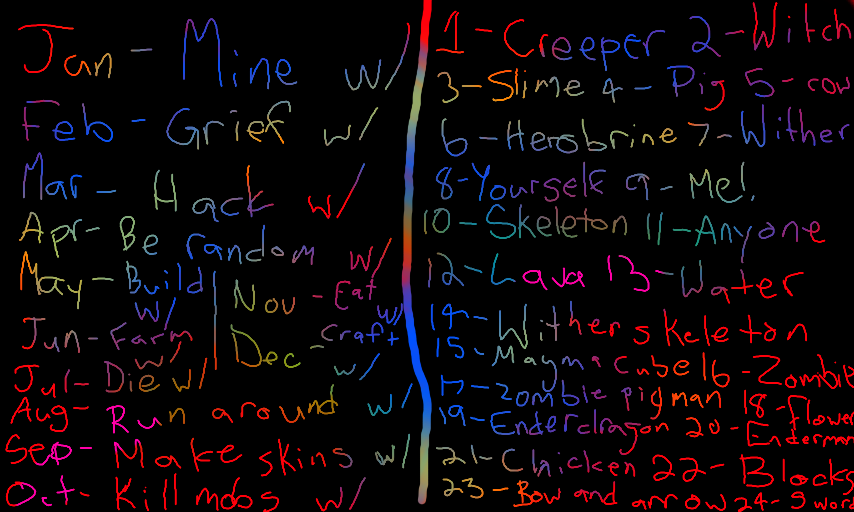 Jan - Mine w/
Feb - Grief w/
Mar - Hack w/
Apr - Be random w/
May - Build w/
Jun - Farm w/
Jul - Die w/
Aug - Run around w/
Sep - Make skins w/
Oct - Kill mobs w/
Nov - Eat w/
Dec - Craft w/
1 - Creeper 2 - Witch
3 - Slime 4 - Pig 5 - cow
6 - Herobrine 7 - Wither
8 - Yourself 9 - Me!
10 - Skeleton 11 - Anyone
12 - Lava 13 - Water
14 - Wither skeleton
15 - Mayma cube 16 - Zombie
17 - zombie pigman 18 - flower
19 - Enderdragon 20 - Enderman
21 - Chicken 22 - Blocks
23 - Bow and arrow 24 - Sword